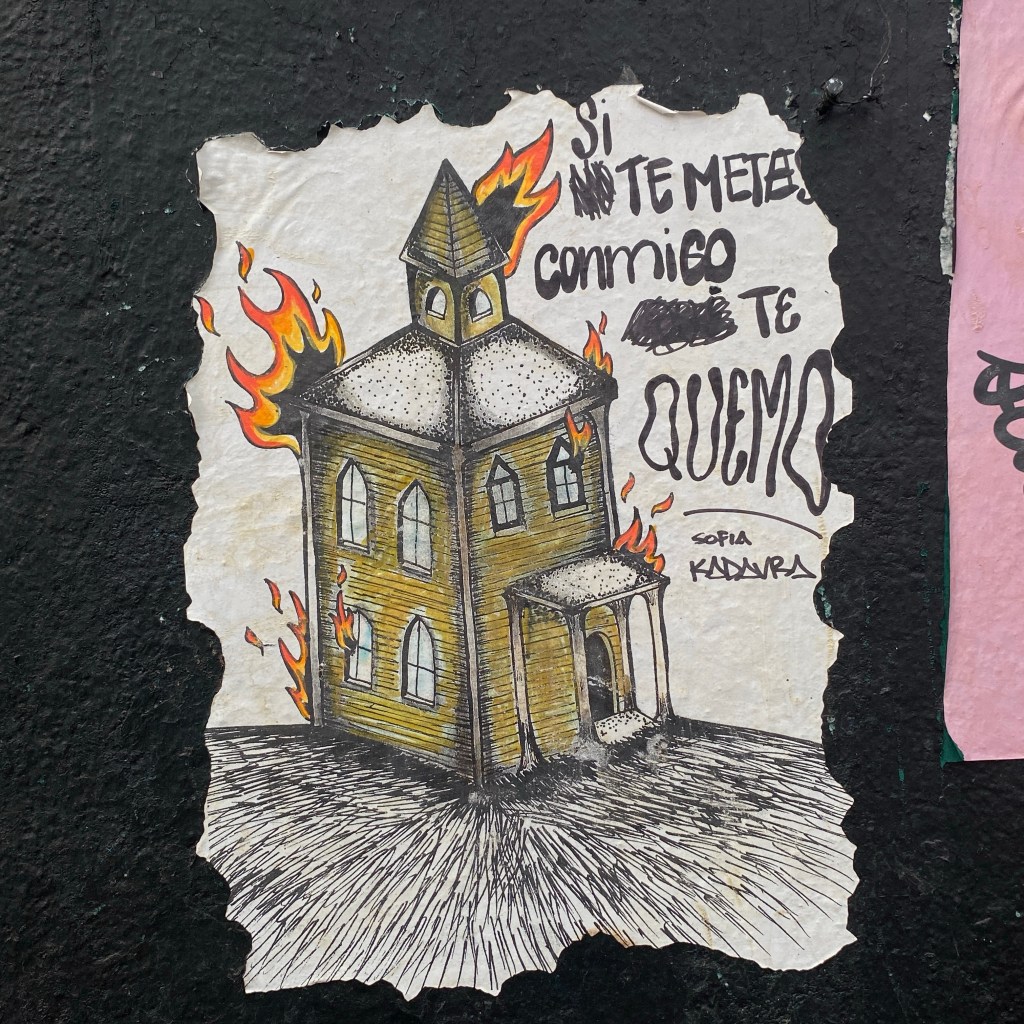 Si
TE METES
conmigo
TE
QUEMO
SOFIA
KADAVRA